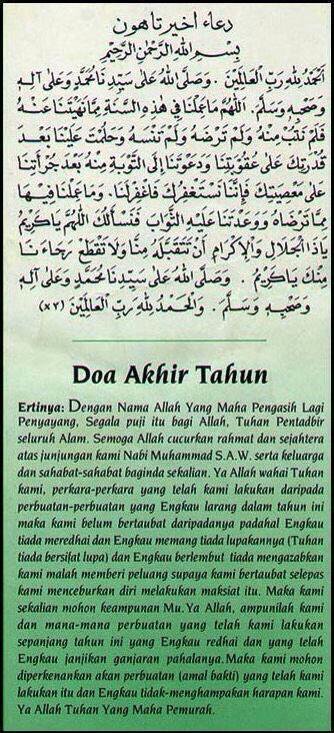 دعاء اخير تاهون
بِسْمِ اللهِ الرَّحْمٰنِ الرَّحِيْمِ
اَلْحَمْدُ لِلهِ رَبِّ الْعَالَمِيْنَ. وَصَلَّى اللهُ عَلَى سَيِّدِنَا مُحَمَّدٍ وَعَلَى آلِهِ
وَصَحْبِهِ وَسَلَّمَ. اَللّٰهُمَّ مَاعَمِلْنَا فِي هٰذِهِ السَّنَةِ مِمَّا نَهَيْتَنَا عَنْهُ
فَلَمْ نَتُبْ مِنْهُ وَلَمْ تَرْضَهُ وَلَمْ تَنْسَهُ وَحَلُمْتَ عَلَيْنَا بَعْدَ
قُدْرَتِكَ عَلَى عُقُوْبَتِنَا وَدَعَوْتَنَا إِلَى التَّوْبَةِ مِنْهُ بَعْدَ جُرْأَتِنَا
عَلَى مَعْصِيَتِكَ فَإِنَّنَا نَسْتَغْفِرُكَ فَاغْفِرْلَنَا. وَمَاعَمِلْنَا فِيْهَا
مِمَّا تَرْضَاهُ وَوَعَدْتَنَا عَلَيْهِ الثَّوَابَ فَنَسْأَلُكَ اللّٰهُمَّ يَاكَرِيْمُ
يَاذَا الْجَلَالِ وَالْإِكْرَامِ أَنْ تَتَقَبَّلَهُ مِنَّا وَلَا تَقْطَعْ رَجَاءَنَا
مِنْكَ يَاكَرِيْمُ. وَصَلَّى اللهُ عَلَى سَيِّدِنَا مُحَمَّدٍ وَعَلَى آلِهِ
وَصَحْبِهِ وَسَلَّمَ. وَالْحَمْدُ لِلهِ رَبِّ الْعَالَمِيْنَ (٣×)
Doa Akhir Tahun
Ertinya: Dengan Nama Allah Yang Maha Pengasih Lagi
Penyayang, Segala puji itu bagi Allah, Tuhan Pentadbir
seluruh Alam. Semoga Allah cucurkan rahmat dan sejahtera
atas junjungan kami Nabi Muhammad S.A.W. serta keluarga
dan sahabat-sahabat baginda sekalian. Ya Allah wahai Tuhan
kami, perkara-perkara yang telah kami lakukan daripada
perbuatan-perbuatan yang Engkau larang dalam tahun ini
maka kami belum bertaubat daripadanya padahal Engkau
tiada meredhai dan Engkau memang tiada lupakannya (Tuhan
tiada bersifat lupa) dan Engkau berlembut tiada mengazabkan
kami malah memberi peluang supaya kami bertaubat selepas
kami menceburkan diri melakukan maksiat itu. Maka kami
sekalian mohon keampunan Mu. Ya Allah, ampunilah kami
dan mana-mana perbuatan yang telah kami lakukan
sepanjang tahun ini yang Engkau redhai dan yang telah
Engkau janjikan ganjaran pahalanya. Maka kami mohon
diperkenankan akan perbuatan (amal bakti) yang telah kami
lakukan itu dan Engkau tidak-menghampakan harapan kami.
Ya Allah Tuhan Yang Maha Pemurah.